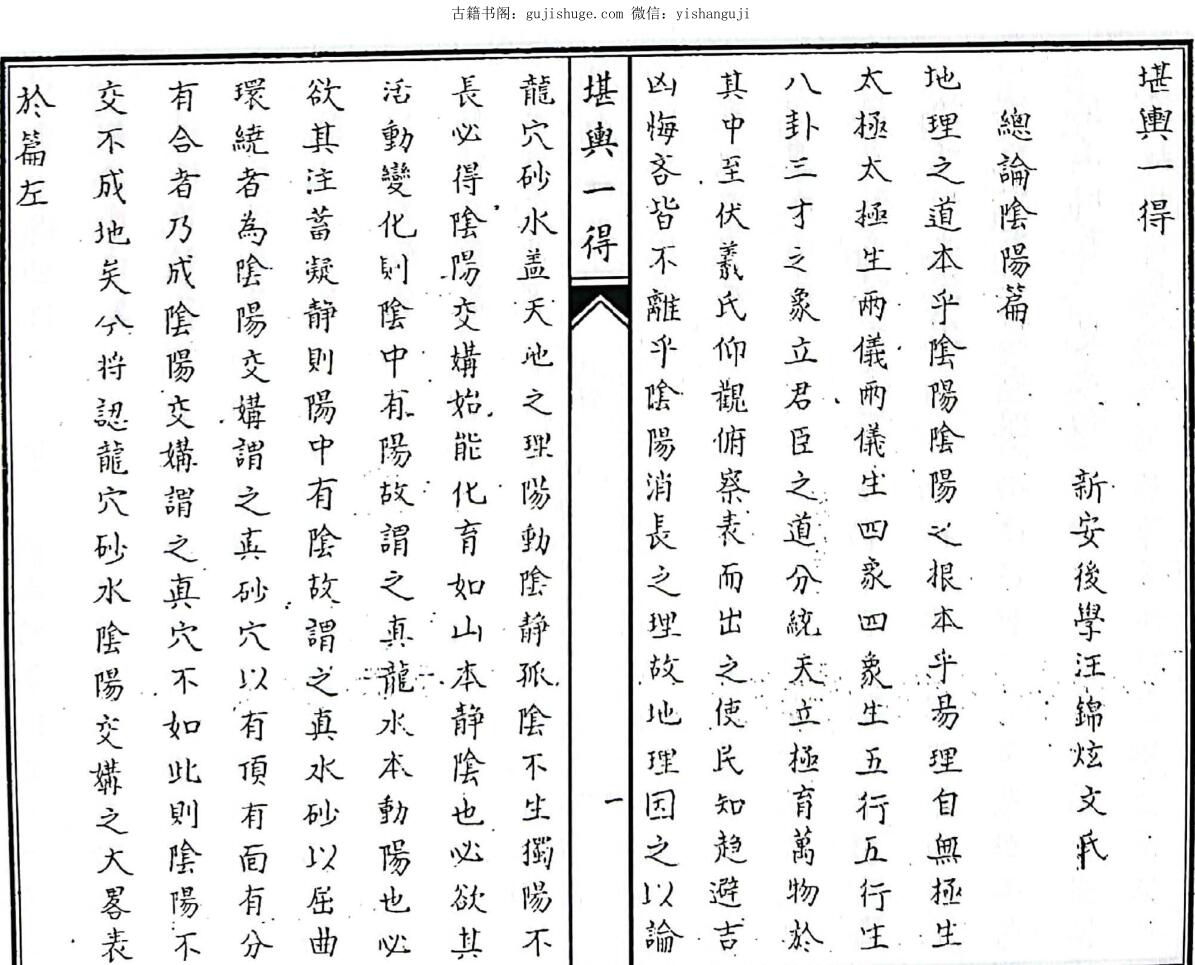 古籍书阁：gujishuge.com 微信：yishanguji
堪輿一得
新安後學汪錦炫文氏
總論陰陽篇
地理之道本乎陰陽陰陽之根本乎易理自無極生
太極太極生兩儀兩儀生四象四象生五行五行生
八卦三才之象立君臣之道分統天立極育萬物於
其中至伏羲氏仰觀俯察表而出之使民知趋避吉
凶悔吝皆不離乎陰陽消長之理故地理因之以論
堪輿一得
一
龍穴砂水盖天地之理陽動陰靜孤陰不生獨陽不
長必得陰陽交媾始能化育如山本静陰也必欲其
活動變化則陰中有陽故謂之真龍水本動陽也必
欲其注蓄凝静則陽中有陰故謂之真水砂以屈曲
環繞者為陰陽交媾謂之真砂穴以有頂有面有分
有合者乃成陰陽交媾謂之真穴不如此則陰陽不
交不成地矣兮将認龍穴砂水陰陽交媾之大畧表
於篇左